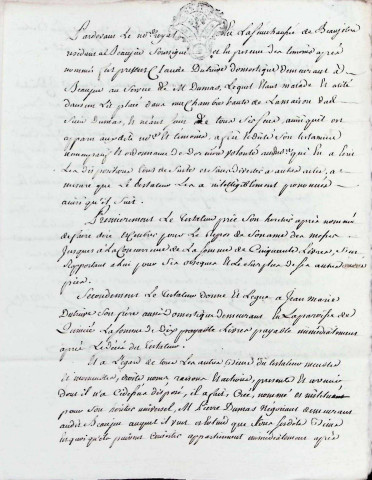 Pardevant le no.re Royal en la senechaussée de Beaujolois
residant a Beaujeu soussigné et en presence des temoins après
nommés fut present Claude Dutruve domestique demeurant a
Beaujeu au service de Mr Dumas, Lequel étant malade et alité
dans un lit placé dans une chambre haute de la maison dud.
sieur Dumas, et néant moins de tous ses sens, ainsi qu'il est
apparu aud. no.re et temoins, a fait et dicté son testament
noncupatif et ordonnance de derniere volonté aud. no.re qui en a écrit
les dispositions tout de suite et sans divertir a autres actes, a
mesure que le testateur les a intelligiblement prononcées
ainsi qu'il suit.
Premierement Le testateur prie son heritier après nommé
de faire dire et celebrer pour le repos de son ame des messes
jusques a la concurrence de la somme de Cinquante Livres, s'en
rapportant a lui pour ses obseques et le surplus de ses autres œuvres
pies.
Secondement Le testateur donne et Legue a Jean Marie
Dutruve son frere aussi domestique demeurant en la paroisse de
Quincié La somme de Dix Livres payable immédiatement
après le décès du testateur.
Et a l'egard de tous Les autres biens du testateur meubles
et immeubles, droits noms raisons et actions, presents et avenir,
dont il n'a cidessus disposé, il a fait, créé, nommé et institué
pour son heritier universel, Mr Pierre Dumas Négociant demeurant
audit Beaujeu auquel il veut et entend que tous sesdits biens
en quoi qu'ils puissent consister appartiennent immediatement après